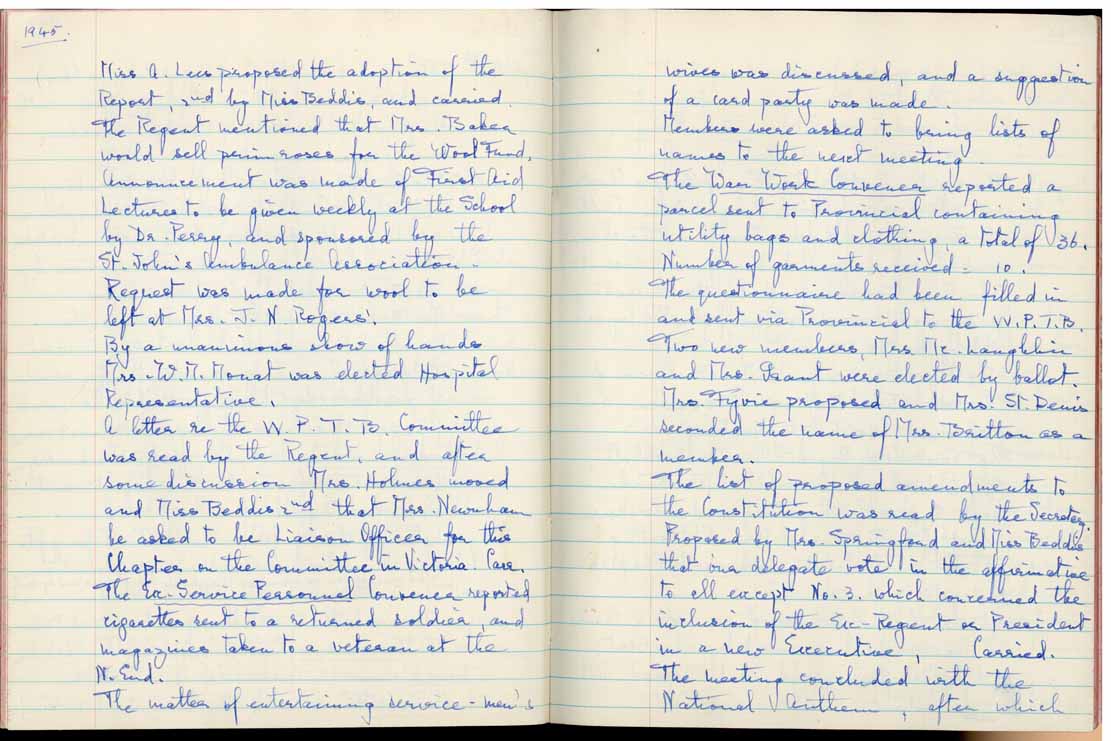 1945.
Miss A. Lees proposed the adoption of the
Report, 2nd by Miss Beddis, and carried.
The Regent mentioned that Mrs. Baker
would sell primroses for the Wool Fund.
Announcement was made of First Aid
Lectures to be given weekly at the School
by Dr. Perry, and sponsored by the
St. John's Ambulance Association.
Request was made for wool to be
left at Mrs. J. N. Rogers'.
By a unanimous show of hands
Mrs. W. M. Mouat was elected Hospital
Representative.
A letter re the W. P. T. B. Committee
was read by the Regent, and after
some discussion Mrs. Holmes moved
and Miss Beddis 2nd that Mrs. Newnham
be asked to be Liaison Officer for this
Chapter on the Committee in Victoria. Carr.
The Ex-Service Personnel Convener reported
cigarettes sent to a returned soldier, and
magazines taken to a veteran at the
N. End.
The matter of entertaining service-men's
wives was discussed, and a suggestion
of a card party was made.
Members were asked to bring lists of
names to the next meeting.
The War Work Convener reported a
parcel sent to Provincial containing
utility bags and clothing, a total of 36.
Number of garments received - 10.
The questionnaire had been filled in
and sent via Provincial to the W.P.T.B.
Two new members, Mrs. Mc. Laughlin
and Mrs. Grant were elected by ballot.
Mrs. Fyvie proposed and Mrs. St. Denis
seconded the name of Mrs. Britton as a
member.
The list of proposed amendments to
the Constitution was read by the Secretary.
Proposed by Mrs. Springford and Miss Beddis
that our delegate vote in the affirmative
to all except No. 3. which concerned the
inclusion of the Ex-Regent or President
in a new Executive, Carried.
The meeting concluded with the
National Anthem, after which